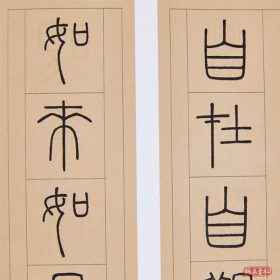 自在自
如來如